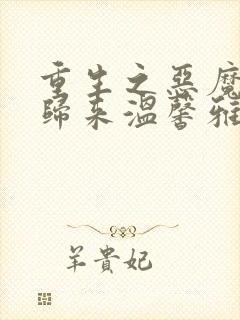 重生之惡魔
歸來溫馨雅
羊貴妃